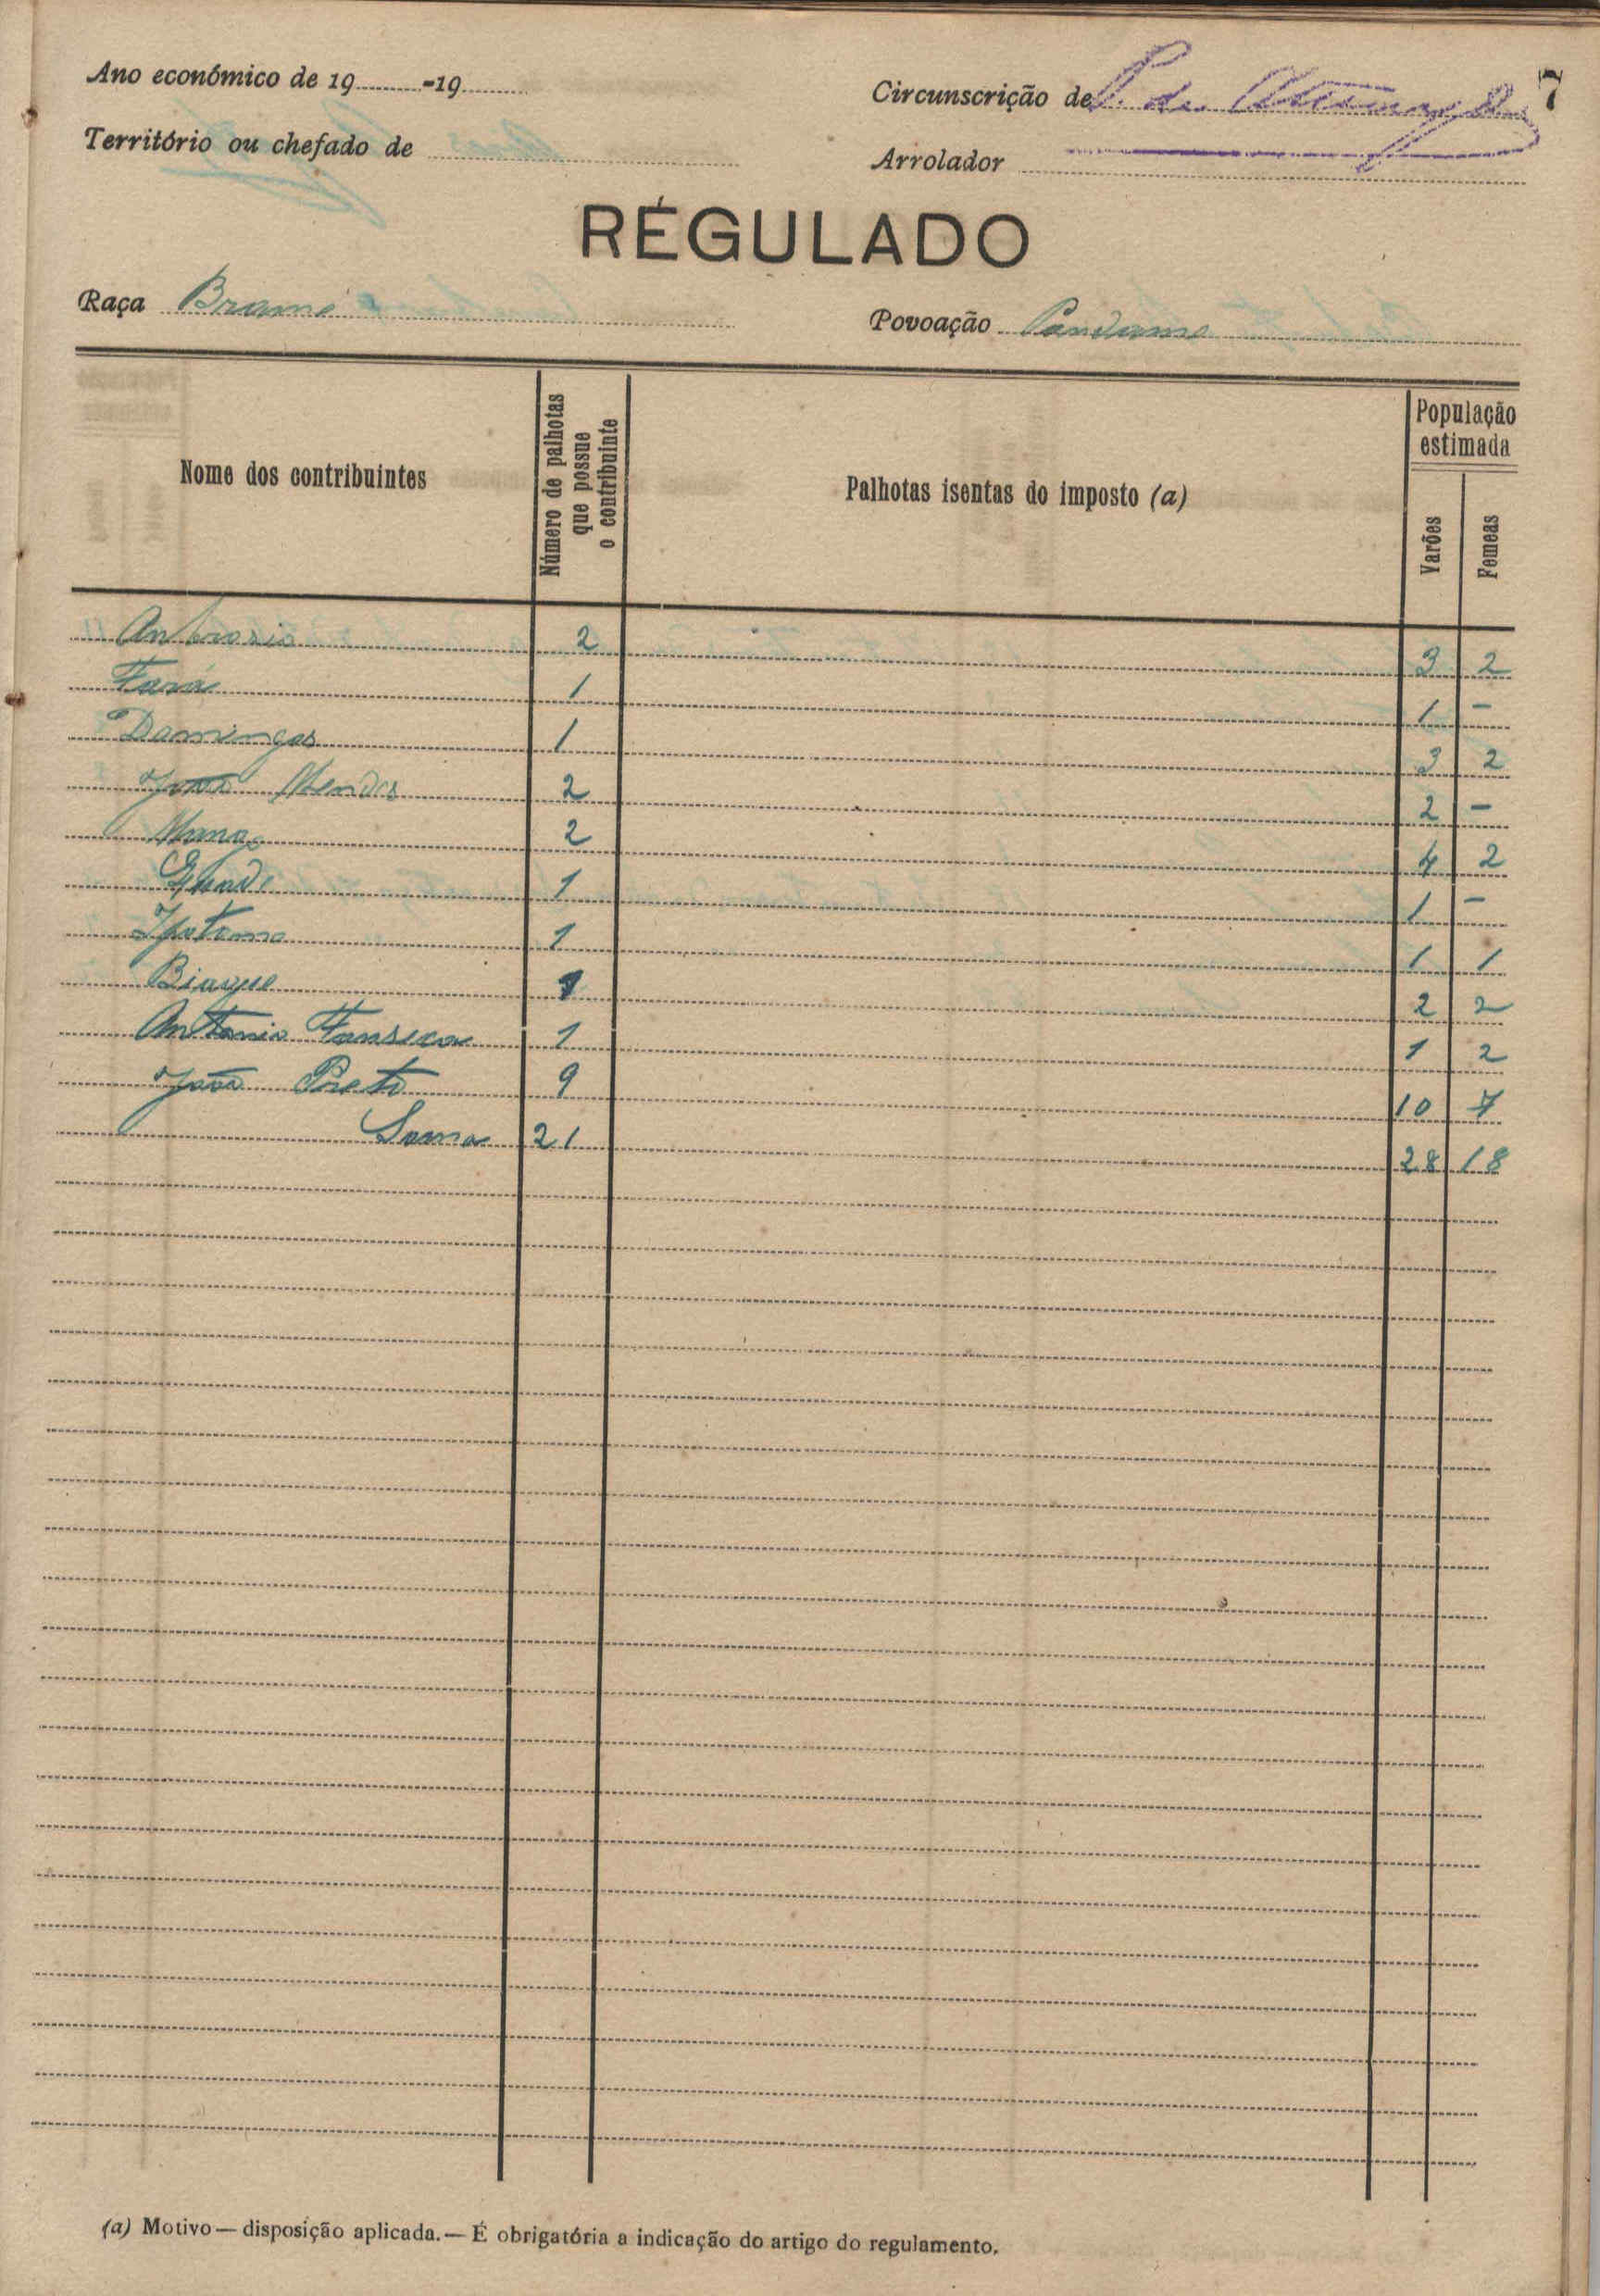 7
Ano económico de 19 -19
Circunscrição de
Território ou chefado de
Arrolador
RÉGULADO
Raça Brame
Povoação Pandame
Nome dos contribuintes
Número de palhotas que possue o contribuinte
Palhotas isentas do imposto (a)
População estimada
Varões
Femeas
Ambrosio 2 3 2
Fará 1 1 -
Domingos 1 3 2
João Mendes 2 2 -
2 4 2
1 1 -
1 1 1
Biague 1 2 2
Antonio Fonseca 1 1 2
João Preto 9 10 7
Soma 21 28 18
(a) Motivo — disposição aplicada. — É obrigatória a indicação do artigo do regulamento.